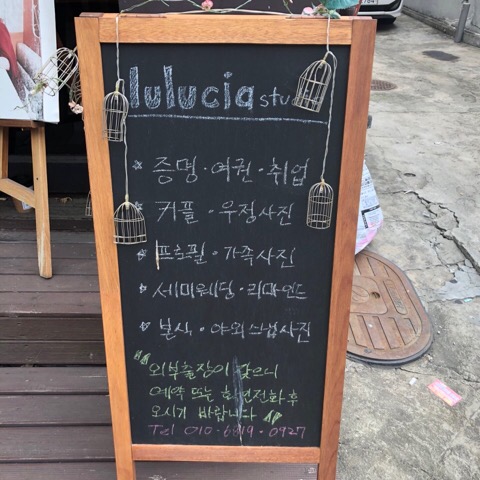 lulucia stu
* 증명·여권·취업
* 커플·우정사진
* 프로필·가족사진
* 세미웨딩·리마인드
* 본식·야외스냅사진
"외부출장이 많으니
예약 또는 화면전화 후
오시기 바랍니다"
Tel 010-6819-0927